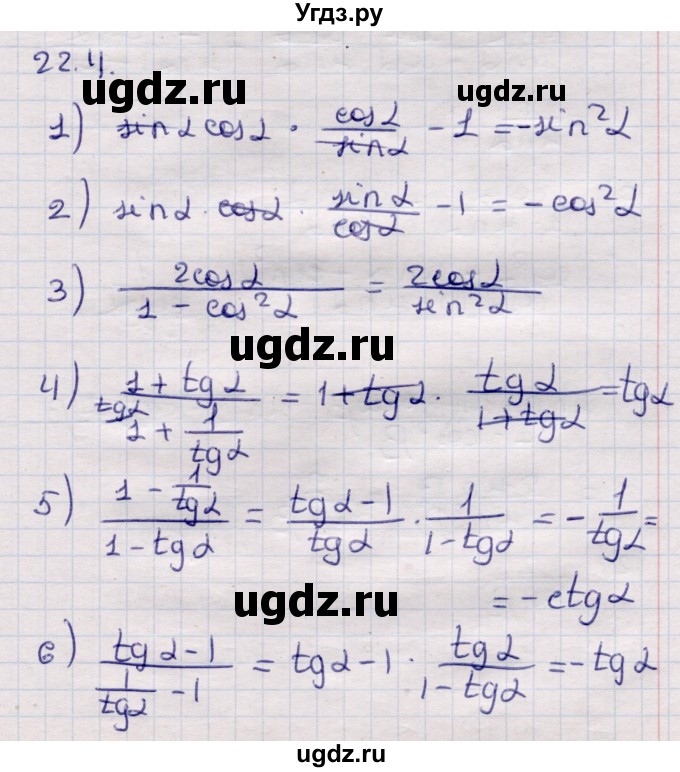 Угдз.ру
22.4.
ugdz.ru
ugdz.ru
1) sinα cosα · cosα/sinα - 1 = -sin²α
2) sinα · cosα · sinα/cosα - 1 = -cos²α
3) 2cosα/(1 - cos²α) = 2cosα/sin²α
ugdz.ru
4) (1 + tgα)/(1 + 1/tgα) = 1 + tgα · tgα/(1 + tgα) = tgα
tgα
5) (1 - 1/tgα)/(1 - tgα) = (tgα - 1)/tgα · 1/(1 - tgα) = -1/tgα =
= -ctgα
ugdz.ru
6) (tgα - 1)/(1/tgα - 1) = tgα - 1 · tgα/(1 - tgα) = -tgα
ugdz.ru